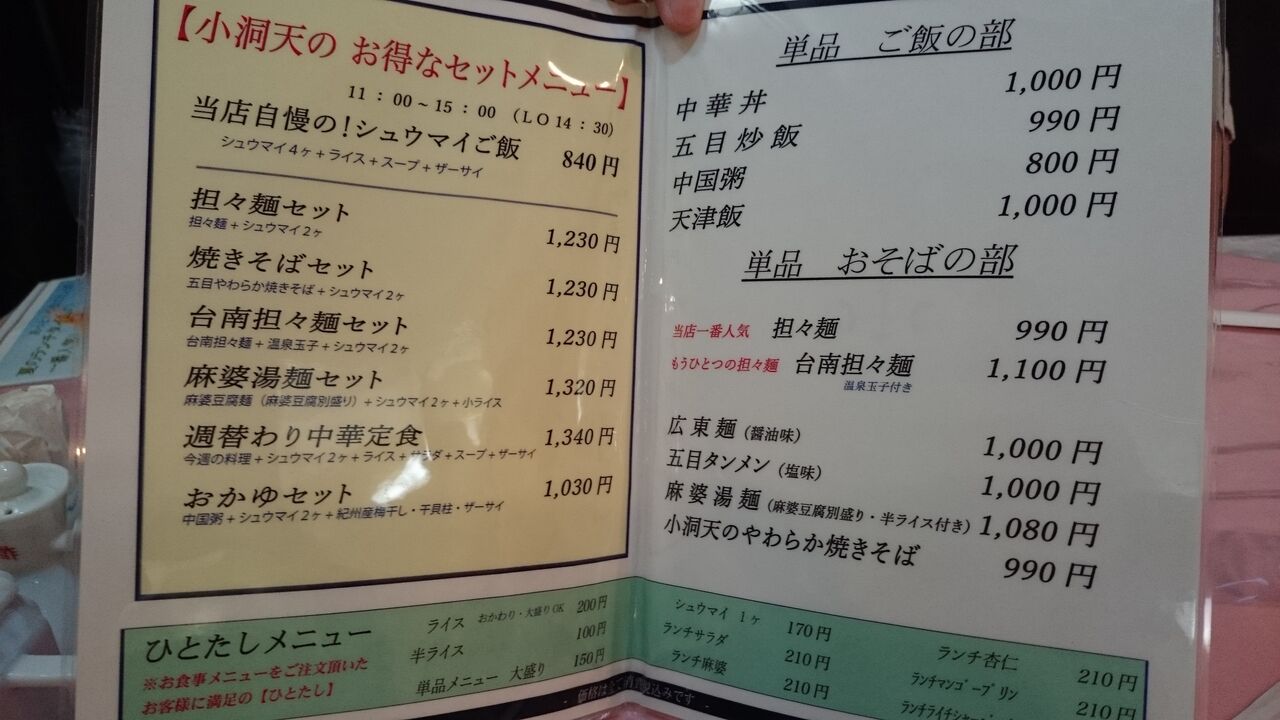 【小洞天の お得なセットメニュー】
11：00～15：00 （LO 14：30）
当店自慢の！シュウマイご飯 840円
シュウマイ4ヶ＋ライス＋スープ＋ザーサイ
担々麺セット
担々麺＋シュウマイ2ヶ 1,230円
焼きそばセット
五目やわらか焼きそば＋シュウマイ2ヶ 1,230円
台南担々麺セット
台南担々麺＋温泉玉子＋シュウマイ2ヶ 1,230円
麻婆湯麺セット 1,320円
麻婆豆腐麺（麻婆豆腐別盛り）＋シュウマイ2ヶ＋小ライス
週替わり中華定食 1,340円
今週の料理＋シュウマイ2ヶ＋ライス＋サラダ＋スープ＋ザーサイ
おかゆセット 1,030円
中国粥＋シュウマイ2ヶ＋紀州産梅干し・干貝柱・ザーサイ
単品 ご飯の部
中華丼 1,000円
五目炒飯 990円
中国粥 800円
天津飯 1,000円
単品 おそばの部
当店一番人気 担々麺 990円
もうひとつの担々麺 台南担々麺 1,100円
温泉玉子付き
広東麺（醤油味） 1,000円
五目タンメン（塩味） 1,000円
麻婆湯麺（麻婆豆腐別盛り・半ライス付き） 1,080円
小洞天のやわらか焼きそば 990円
ひとたしメニュー
※お食事メニューをご注文頂いた
お客様に満足の【ひとたし】
ライス おかわり・大盛りOK 200円
半ライス 100円
単品メニュー 大盛り 150円
シュウマイ 1ヶ 170円
ランチサラダ 210円
ランチ麻婆 210円
ランチ杏仁 210円
ランチマンゴープリン 210円